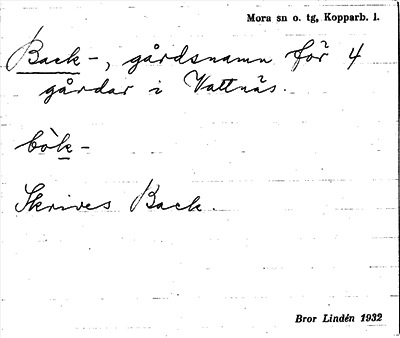 Mora sn o. tg, Kopparb. l.
Back-, gårdsnamn för 4
gårdar i Vattnäs.
bòk-
Skrives Back.
Bror Lindén 1932